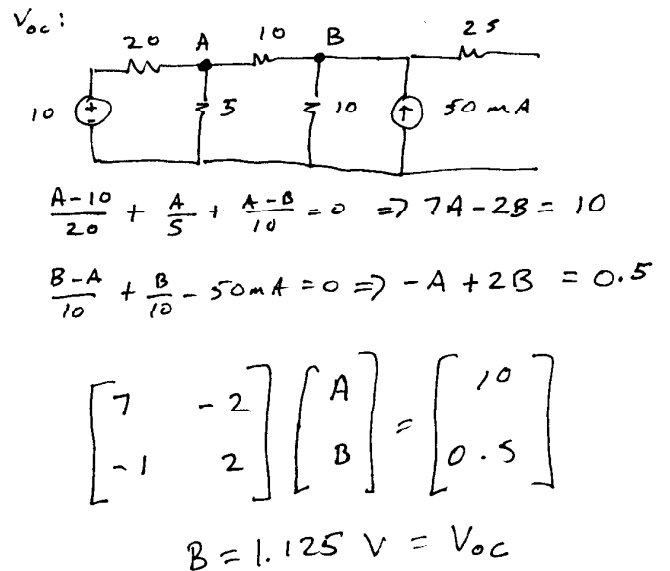 Voc:
20 A 10 B 25
10 + - 5 10 ↑ 50 mA
A-10/20 + A/5 + A-B/10 = 0 => 7A - 2B = 10
B-A/10 + B/10 - 50mA = 0 => -A + 2B = 0.5
[7 -2] [A] = [10]
[-1 2] [B] [0.5]
B = 1.125 V = Voc